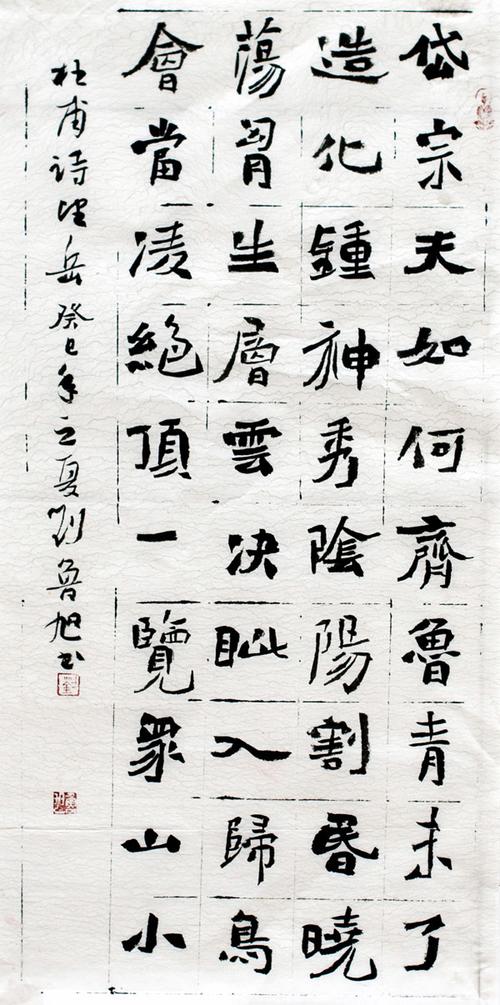 岱宗夫如何齊魯青未了
造化鍾神秀陰陽割昏曉
蕩胷生層雲决眦入歸鳥
會當凌絕頂一覽眾山小
杜甫诗望岳癸巳年立夏劉魯旭书